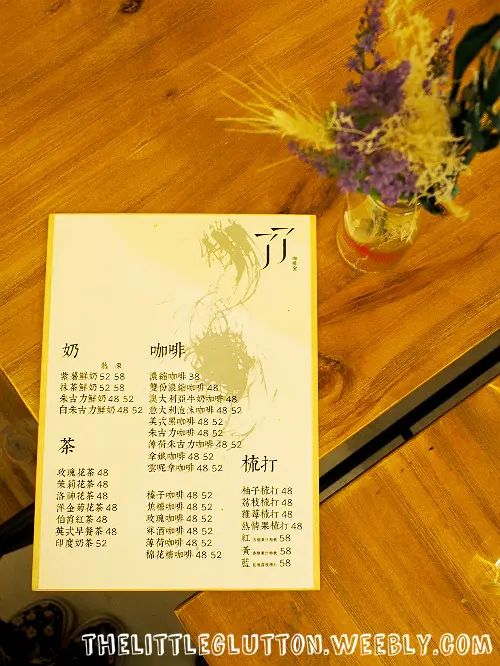 丁丁
咖啡室
奶
熱 凍
紫薯鮮奶 52 58
抹茶鮮奶 52 58
朱古力鮮奶 48 52
白朱古力鮮奶 48 52
茶
玫瑰花茶 48
茉莉花茶 48
洛神花茶 48
洋金菊花茶 48
伯爵紅茶 48
英式早餐茶 48
印度奶茶 52
咖啡
濃縮咖啡 38
雙份濃縮咖啡 48
澳大利亞牛奶咖啡 48
意大利泡沫咖啡 48 52
美式黑咖啡 48 52
朱古力咖啡 48 52
薄荷朱古力咖啡 48 52
拿鐵咖啡 48 52
雲呢拿咖啡 48 52
榛子咖啡 48 52
焦糖咖啡 48 52
玫瑰咖啡 48 52
咖啡 48 52
薄荷咖啡 48 52
棉花糖咖啡 48 52
梳打
柚子梳打 48
荔枝梳打 48
梳打 48
熱情果梳打 48
紅 58
黃 58
藍 58
THELITTLEGLUTTON.WEEBLY.COM